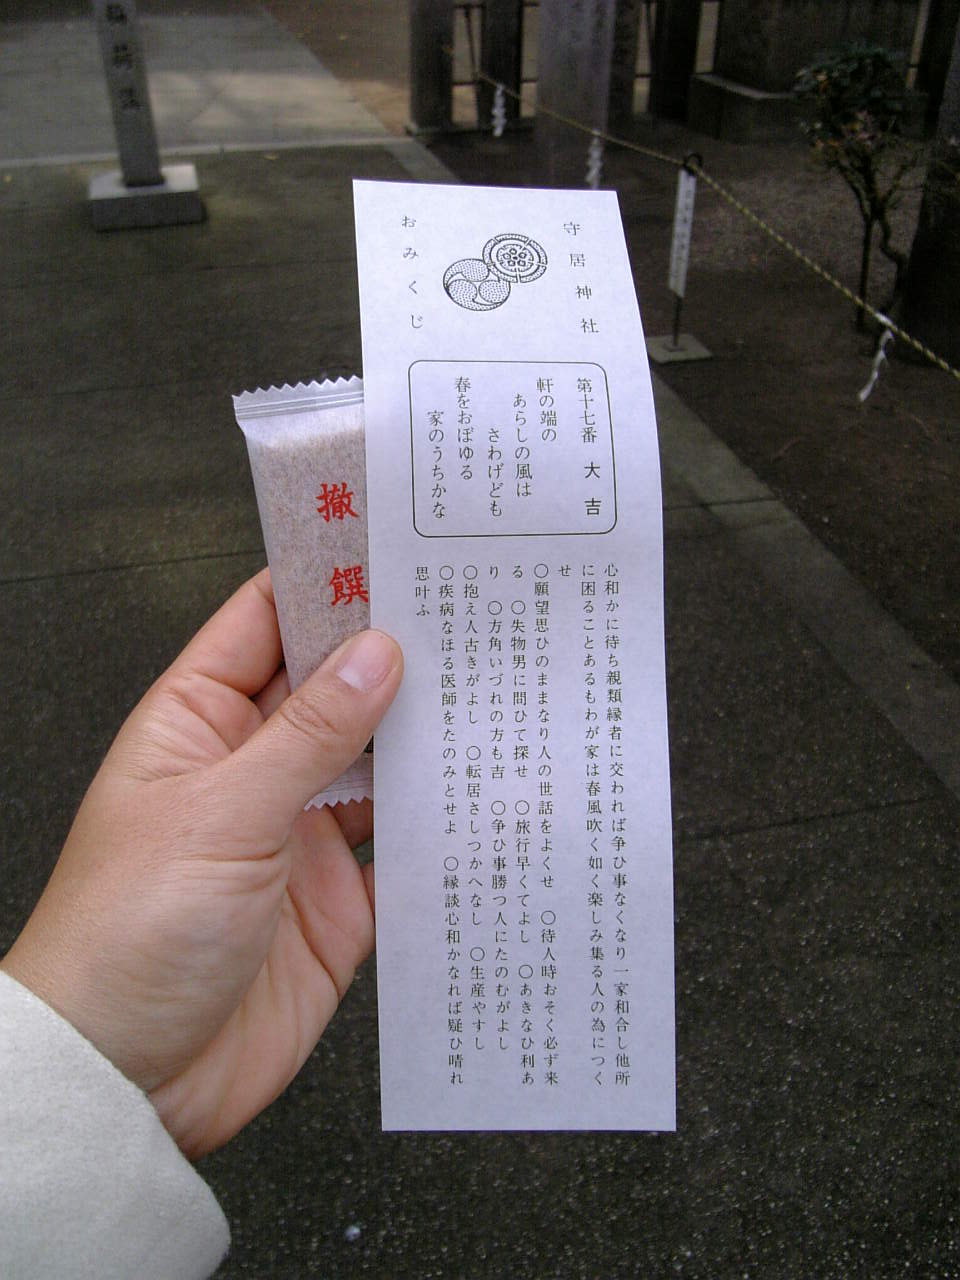 守居神社
おみくじ
第十七番 大吉
軒の端の
あらしの風は
さわげども
春をおぼゆる
家のうちかな
心和かに待ち親類縁者に交われば争ひ事なくなり一家和合し他所
に困ることあるもわが家は春風吹く如く楽しみ集る人の為につく
せ
○願望思ひのままなり人の世話をよくせ ○待人時おそく必ず来
る ○失物男に問ひて探せ ○旅行早くてよし ○あきなひ利あ
り ○方角いづれの方も吉 ○争ひ事勝つ人にたのむがよし
○抱え人古きがよし ○転居さしつかへなし ○生産やすし
○疾病なほる医師をたのみとせよ ○縁談心和かなれば疑ひ晴れ
思叶ふ
撤饌